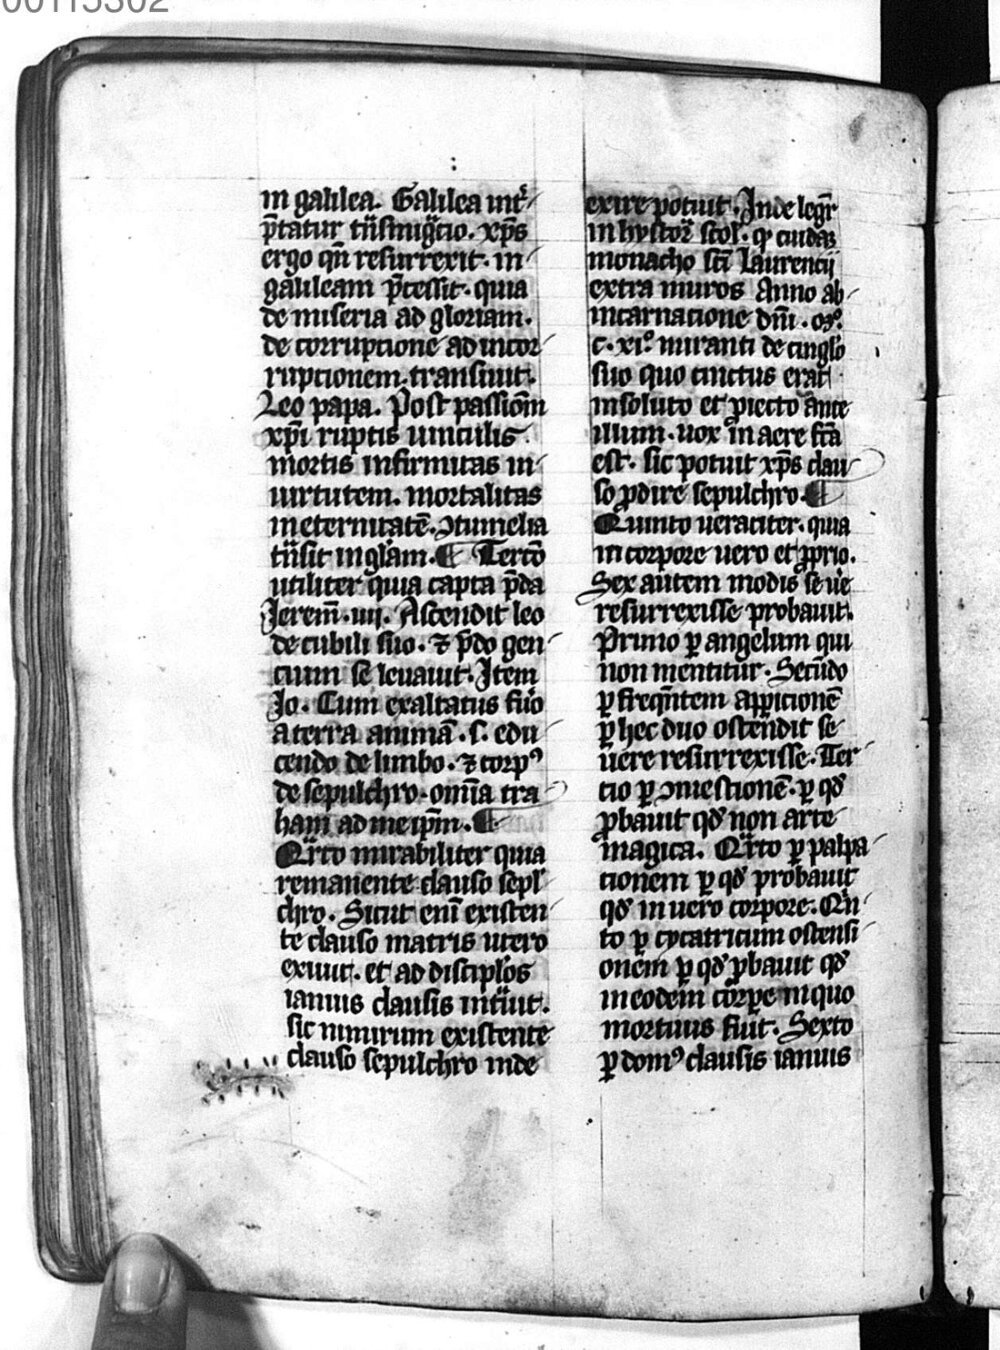 00115302
in galilea. Galilea int͛
p̄tatur tn̄smigͣcio. xp̄s
ergo qn̄ resurrexit. in
galileam p̄cessit. quia
de miseria ad gloriam.
de corrupcione ad incor
rupcionem transiuit.
Leo papa. Post passiōm
xp̄i ruptis uinculis
mortis infirmitas in
uirtutem. mortalitas
in eternitatē. ꝯtumelia
tn̄sit in gl̄am. ¶ Tercō
utiliter quia capta p̄da
Jerem̄. iiij. Ascendit leo
de cubili suo. ⁊ p̄do gen
cium se leuauit. Item
Jo. Cum exaltatus fuͦo
a terra animā. s. edu
cendo de limbo. ⁊ corpꝰ
de sepulchro. omīa tra
ham ad me ip̄m. ¶
Qͣrto mirabiliter quia
remanente clauso sepl̄
chro. Sicut enī existen
te clauso matris utero
exiuit. et ad discipl̄os
ianuis clausis intͣuit.
sic nimirum existente
clauso sepulchro inde
exire potuit. Inde legr̄
in hystor̄ scol. ꝙ cuidaꝫ
monacho sc̄i Laurencij
extra muros Anno ab
incarnacione dn̄i. oꝫͦ.
c. xiͦ. miranti de cinglo
suo quo cinctus erat
insoluto et ꝓiecto ante
illum. uox in aere fc̄a
est. sic potuit xp̄s clau
so ꝓdire sepulchro. ¶
Quinto ueraciter. quia
in corpore uero et ꝓprio.
Sex autem modis se ue͛
resurrexisse probauit.
Primo ꝑ angelum qui
non mentitur. Secūdo
ꝑ freqn̄tem apꝑicionē
ꝑ hec duo ostendit se
uere resurrexisse. Ter
cio ꝑ ꝯmestionē. ꝑ qd̄
ꝓbauit qd̄ non arte
magica. Qͣrto ꝑ palpa
cionem ꝑ qd̄ probauit
qd̄ in uero corpore. Qn̄
to ꝑ cycatricum ostensi
onem ꝑ qd̄ ꝓbauit qd̄
in eodem corꝑe in quo
mortuus fuit. Sexto
ꝑ domꝰ clausis ianuis